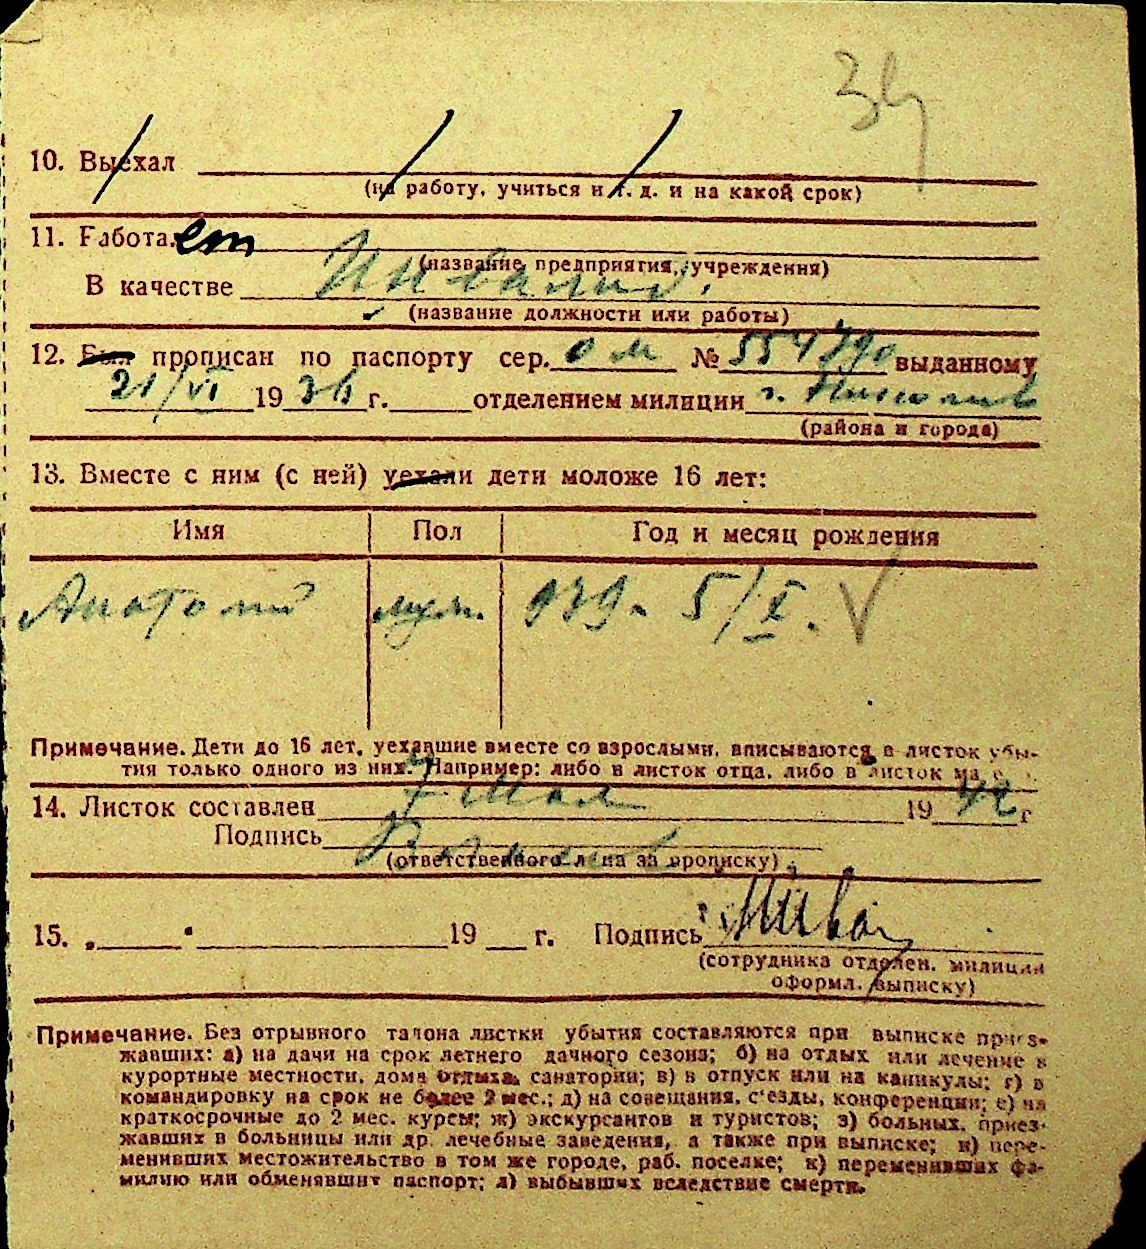 34
10. Выехал
(на работу, учиться и т. д. и на какой срок)
11. Работает
(название предприятия, учреждения)
В качестве Инвалид.
(название должности или работы)
12. Был прописан по паспорту сер. ом № 554790 выданному
21/VI 1936 г. отделением милиции г.
(района и города)
13. Вместе с ним (с ней) уехали дети моложе 16 лет:
Имя Пол Год и месяц рождения
Анатолий муж. 939- 5/X. V
Примечание. Дети до 16 лет, уехавшие вместе со взрослыми, вписываются в листок убы-
тия только одного из них. Например: либо в листок отца, либо в листок
14. Листок составлен 7 Мая 1942 г
Подпись
(ответственного лица за прописку)
15. „ " 19 г. Подпись
(сотрудника отделен. милиции
оформл. выписку)
Примечание. Без отрывного талона листки убытия составляются при выписке приез-
жавших: а) на дачи на срок летнего дачного сезона; б) на отдых или лечение в
курортные местности, дома отдыха, санатории; в) в отпуск или на каникулы; г) в
командировку на срок не более 2 мес.; д) на совещания, съезды, конференции; е) на
краткосрочные до 2 мес. курсы; ж) экскурсантов и туристов; з) больных, приез-
жавших в больницы или др. лечебные заведения, а также при выписке; и) пере-
менивших местожительство в том же городе, раб. поселке; к) переменивших фа-
милию или обменявшит паспорт; л) выбывших вследствие смерти.